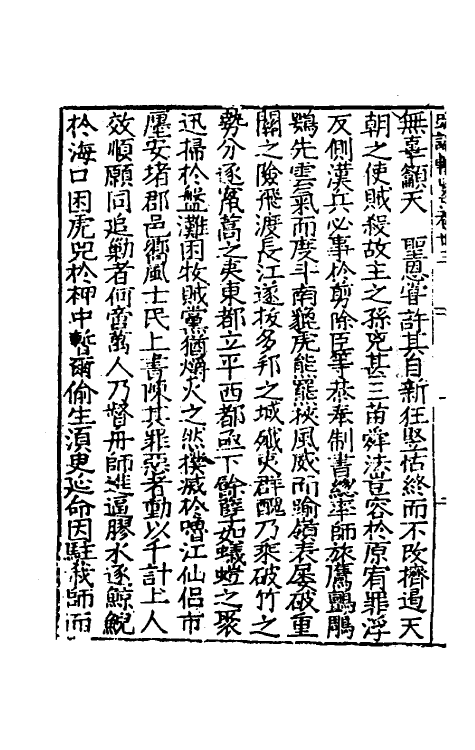 無辜籲天　聖恩眷許其自新狂竪怙終而不改擠遏天
朝之使賊殺故主之孫兇甚三苗舜法豈容於原宥罪浮
反側漢兵必事於剪除臣等恭奉制書緫率師旅鷹鸇鵰
鶚先雲氣而度斗南貔虎熊羆挾風威而踰嶺表屢破重
關之險飛渡長江遂拔多邦之城殲夷群醜乃乘破竹之
勢分逐竄蒿之夷東都立平西都亟下餘孽如蟻螘之聚
迅掃於盤灘困牧賊黨猶爝火之然撲滅於嚕江仙侶市
壓安堵郡邑嚮風士民上書陳其罪惡者動以千計土人
效順願同追勦者何啻萬人乃督舟師進逼膠水逐鯨鯢
於海口困虎兕於柙中暫爾偷生湏臾延命因駐我師而